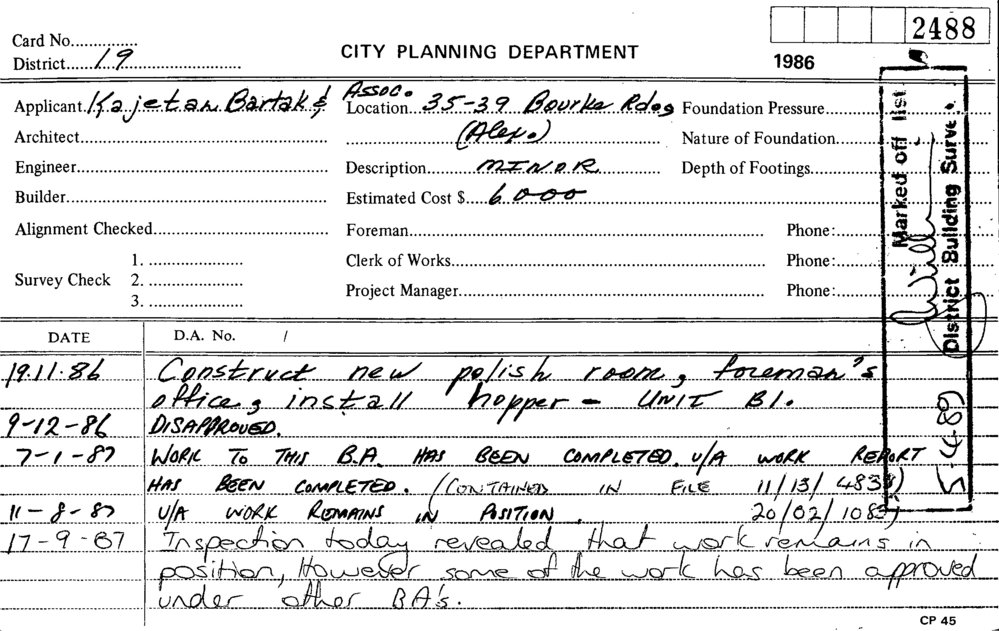 2488
Card No.
District 19
CITY PLANNING DEPARTMENT
1986
Applicant Kajetan Bartak & Assoc.
Location 35-39 Bourke Rd
(Alex.)
Foundation Pressure
Architect
Nature of Foundation
Engineer
Description MINOR
Depth of Footings
Builder
Estimated Cost $ 6000
Alignment Checked
Foreman
Phone:
Survey Check
1.
2.
3.
Clerk of Works
Phone:
Project Manager
Phone:
Marked off list
District Building Surve
5-4-89
DATE
D.A. No. /
19.11.86 Construct new polish room, foreman's
office, install hopper - UNIT B1.
9-12-86 DISAPPROVED.
7-1-87 WORK TO THIS B.A. HAS BEEN COMPLETED. U/A WORK REPORT
HAS BEEN COMPLETED. (CONTAINED IN FILE 11/13/483
11-8-87 U/A WORK REMAINS IN POSITION. 20/02/108
17-9-87 Inspection today revealed that work remains in
position, However some of the work has been approved
under other BA's.
CP 45